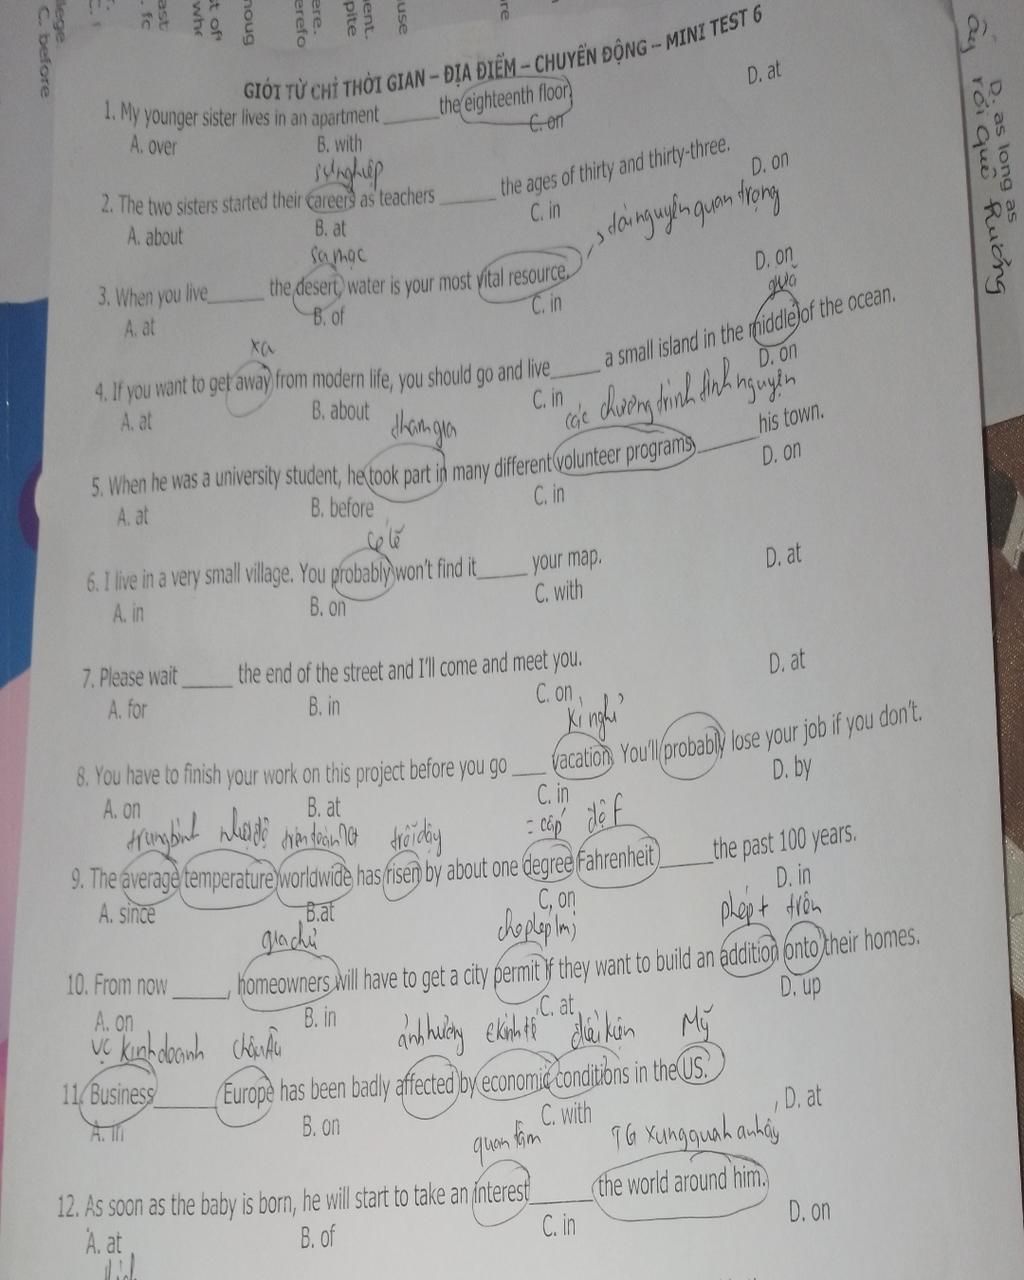 lege
C. before
ast
. fc
t of
whc
noug
ere.
erefo
ent.
pite
use
re
D. as long as
rồi quê hương
GIỚI TỪ CHỈ THỜI GIAN – ĐỊA ĐIỂM – CHUYỂN ĐỘNG – MINI TEST 6
1. My younger sister lives in an apartment ______ the eighteenth floor.
A. over B. with C. on D. at
sự nghiệp
2. The two sisters started their careers as teachers ______ the ages of thirty and thirty-three.
A. about B. at C. in D. on
sa mạc → tài nguyên quan trọng
3. When you live ______ the desert, water is your most vital resource.
A. at B. of C. in D. on
xa giữa
4. If you want to get away from modern life, you should go and live ______ a small island in the middle of the ocean.
A. at B. about C. in D. on
tham gia các chương trình tình nguyện
5. When he was a university student, he took part in many different volunteer programs ______ his town.
A. at B. before C. in D. on
có lẽ
6. I live in a very small village. You probably won't find it ______ your map.
A. in B. on C. with D. at
7. Please wait ______ the end of the street and I'll come and meet you.
A. for B. in C. on D. at
kì nghỉ
8. You have to finish your work on this project before you go ____ vacation. You'll probably lose your job if you don't.
A. on B. at C. in D. by
trung bình nhiệt độ trên toàn TG trỗi dậy = cấp độ F
9. The average temperature worldwide has risen by about one degree Fahrenheit ______ the past 100 years.
A. since B.at C, on D. in
gia chủ cho phép phép + trên
10. From now ______, homeowners will have to get a city permit if they want to build an addition onto their homes.
A. on B. in C. at D. up
vc kinh doanh châu Âu ảnh hưởng kinh tế điều kiện Mỹ
11. Business ______ Europe has been badly affected by economic conditions in the US.
A. in B. on C. with D. at
quan tâm TG xung quanh anh ấy
12. As soon as the baby is born, he will start to take an interest ______ the world around him.
A. at B. of C. in D. on